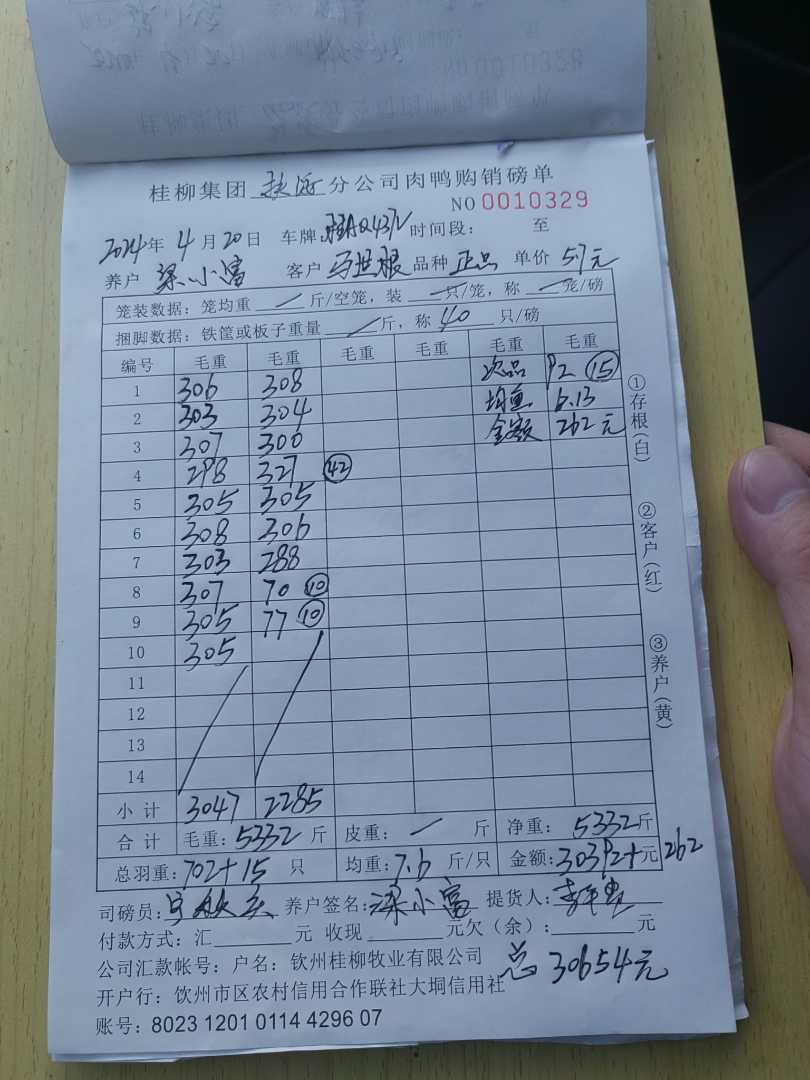 桂柳集团 分公司肉鸭购销磅单
NO 0010329
2024年 4月 20日 车牌: 时间段: 至
养户 梁小富 客户 马世根 品种 正品 单价 5.7元
笼装数据: 笼均重 / 斤/空笼, 装 / 只/笼, 称 / 笼/磅
捆脚数据: 铁筐或板子重量 / 斤, 称 40 只/磅
编号 毛重 毛重 毛重 毛重 毛重 毛重
1 306 308 次品 92 ⑮
2 303 304 均重 6.13
3 307 300 金额 262元
4 298 327 ㊷
5 305 305
6 308 306
7 303 288
8 307 70 ⑩
9 305 77 ⑩
10 305
11
12
13
14
小计 3047 2285
合计 毛重: 5332 斤 皮重: / 斤 净重: 5332斤
总羽重: 702+15 只 均重: 7.6 斤/只 金额: 30392+元 262
司磅员: 养户签名: 梁小富 提货人:
付款方式: 汇 元 收现 元欠(余): 元
公司汇款帐号: 户名: 钦州桂柳牧业有限公司 总 30654元
开户行: 钦州市区农村信用合作联社大垌信用社
账号: 8023 1201 0114 4296 07
①存根(白)
②客户(红)
③养户(黄)